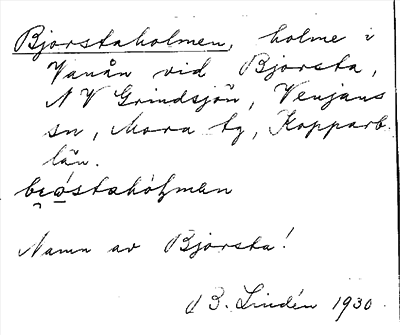 Bjorstaholmen, holme i
Vanån vid Bjorsta,
NV Grindsjön, Venjans
sn, Mora tg, Kopparb.
län.
Namn av Bjorsta!
B. Lindén 1930.